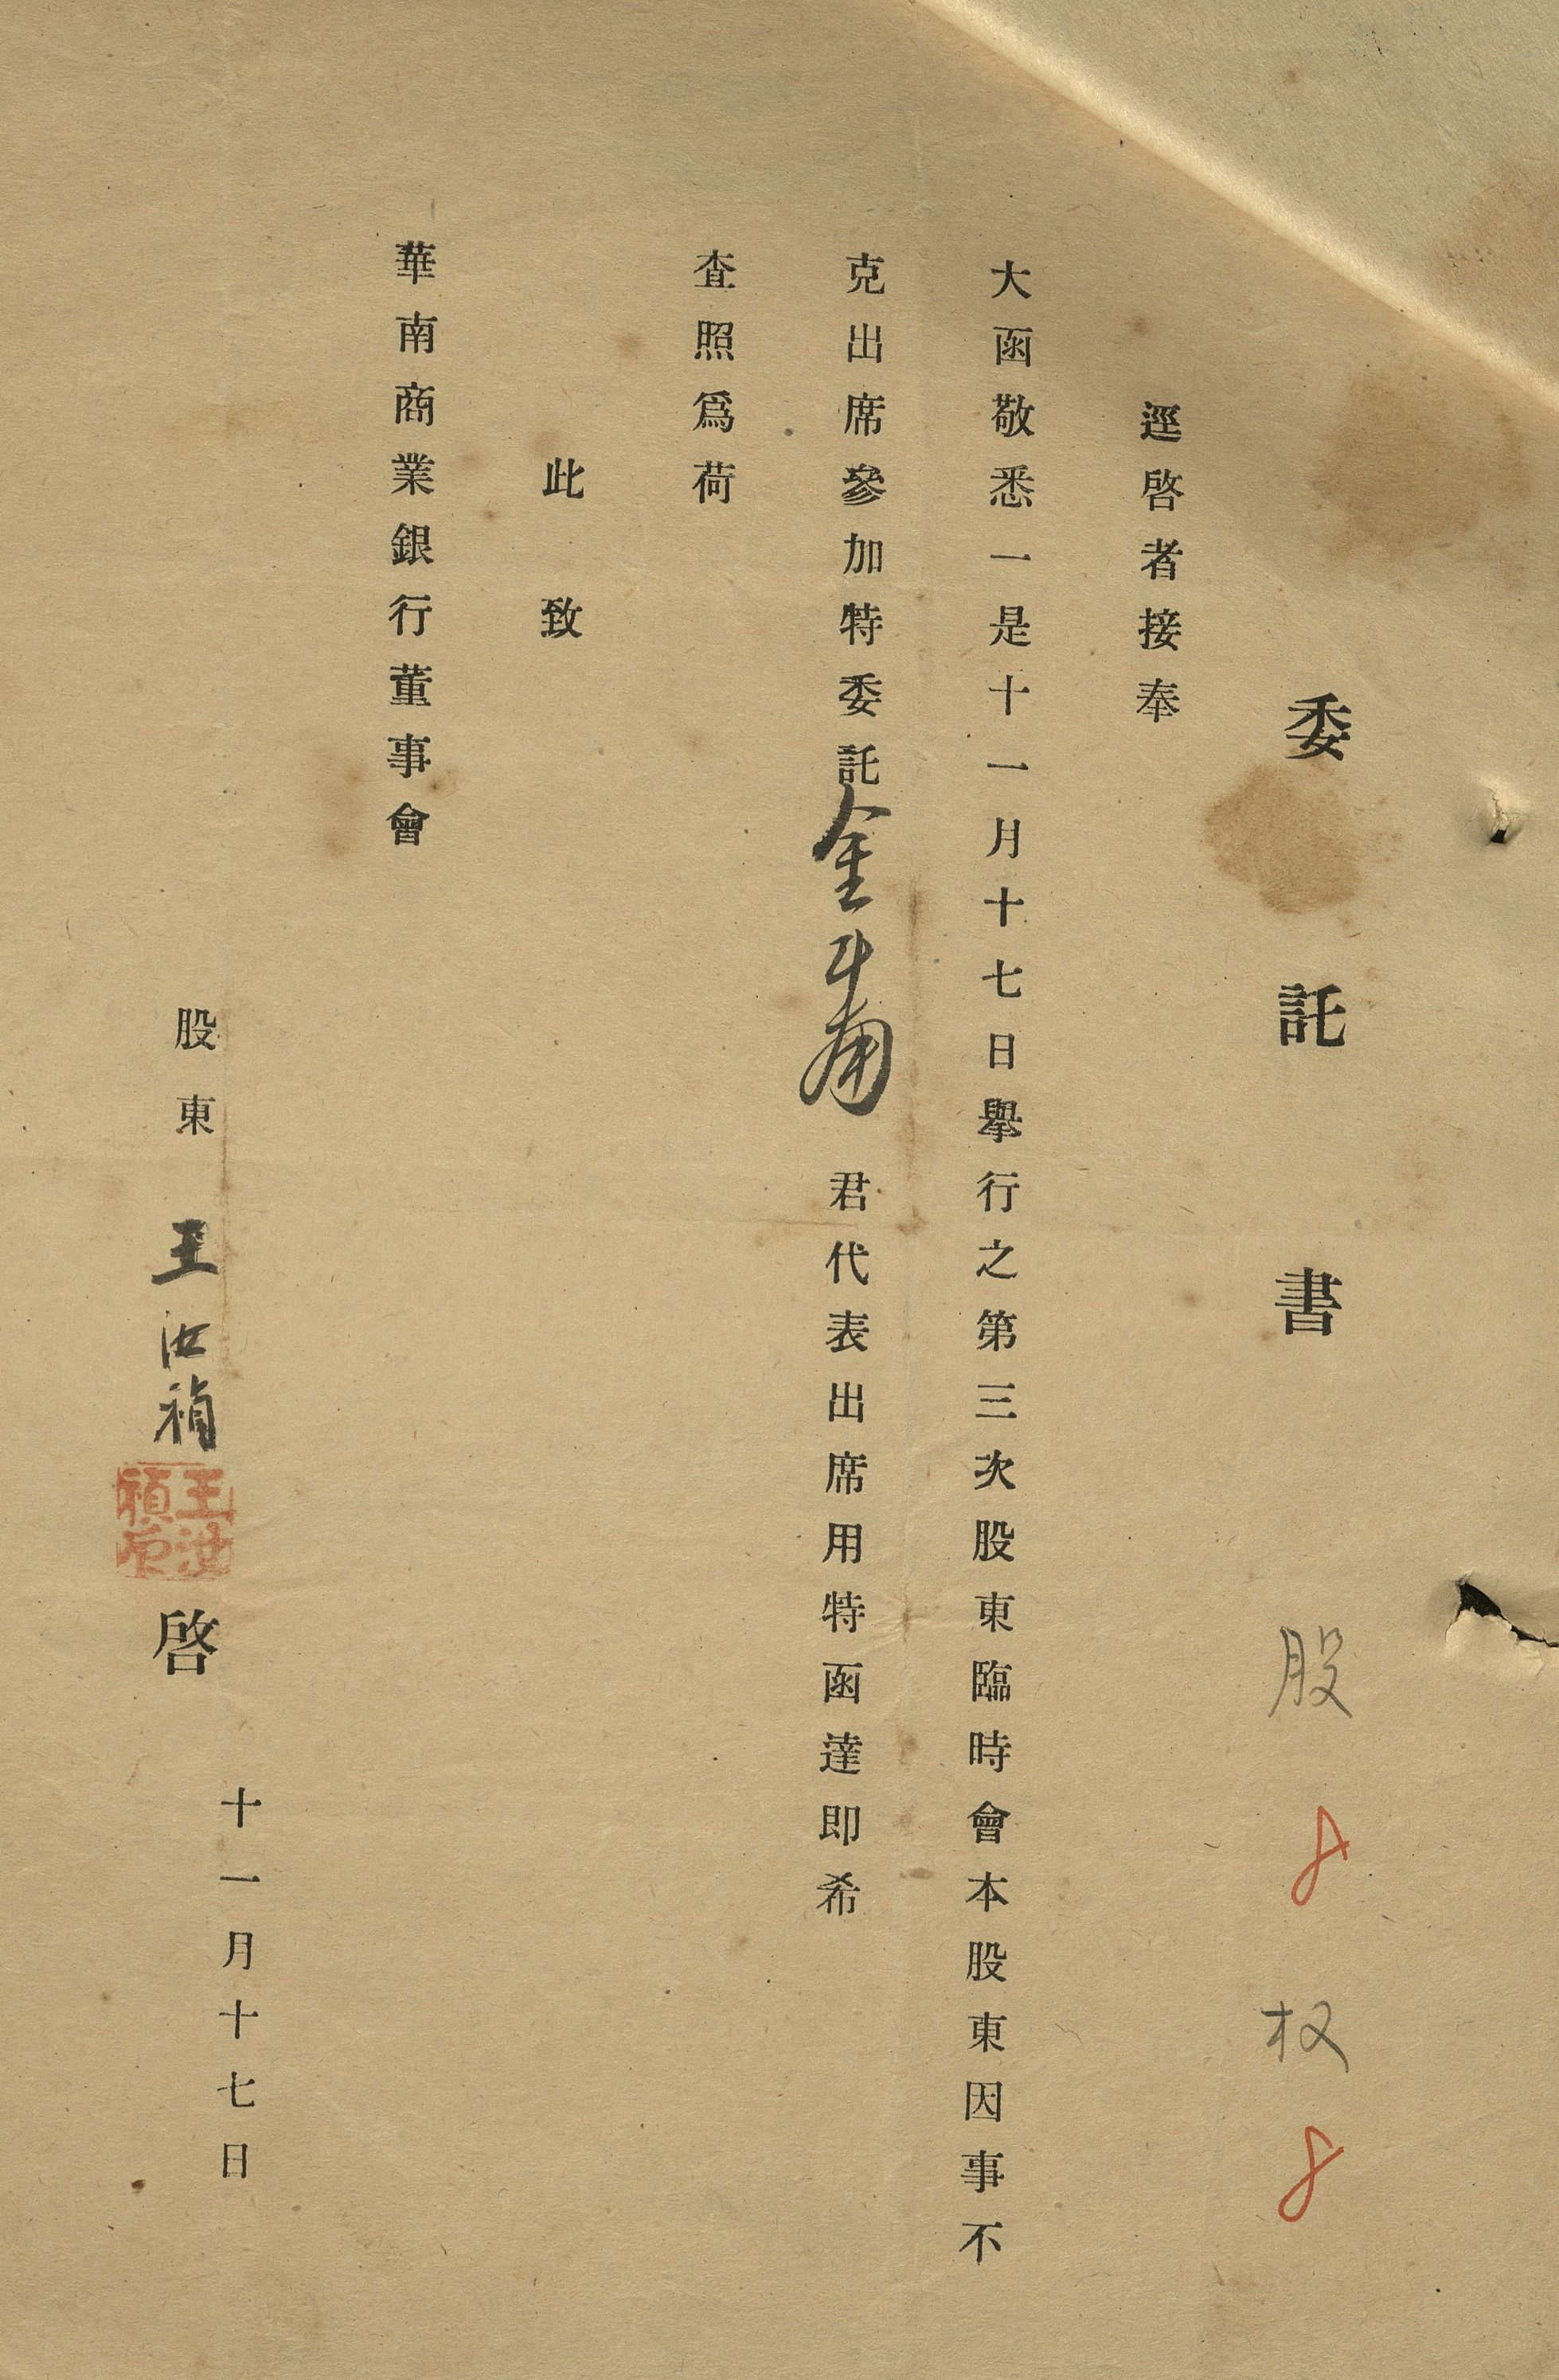 委託書 股 8 权 8
逕啓者接奉
大函敬悉一是十一月十七日舉行之第三次股東臨時會本股東因事不
克出席參加特委託金 君代表出席用特函達即希
查照爲荷
此致
華南商業銀行董事會
股東 王 禎 啓
十一月十七日